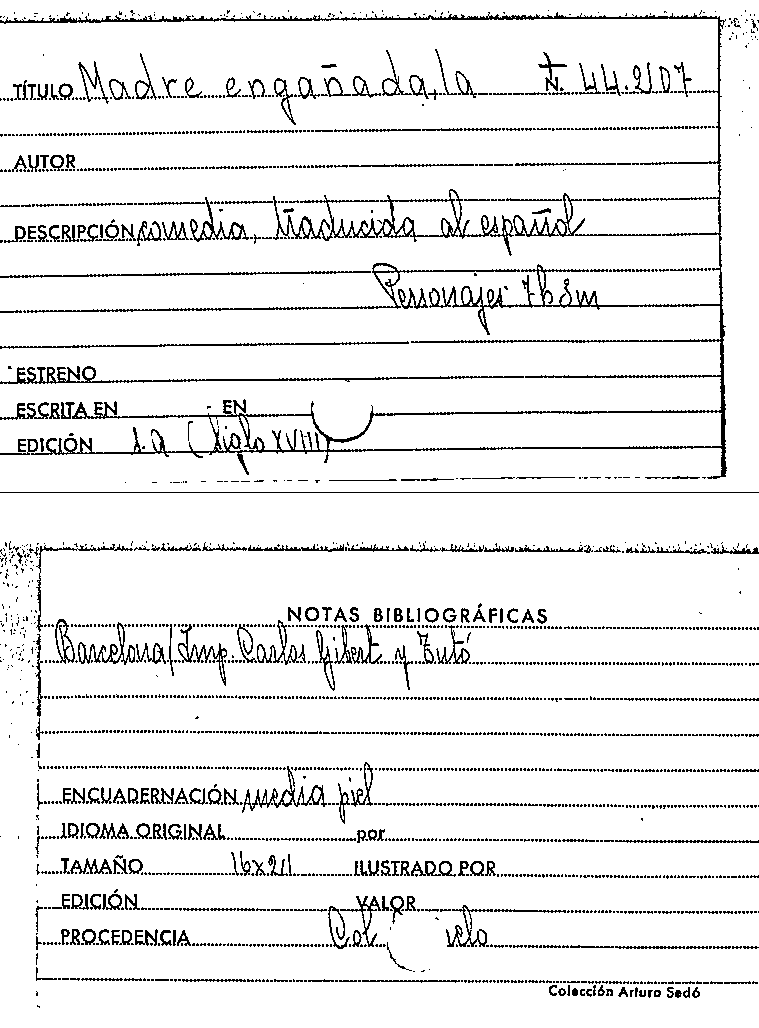 TÍTULO Madre engañada, la N. 44.207
AUTOR
DESCRIPCIÓN comedia, traducida al español
Personajes 7h 3m
ESTRENO
ESCRITA EN EN
EDICIÓN s.a (Siglo XVIII)
NOTAS BIBLIOGRÁFICAS
Barcelona/Imp. Carlos Gibert y Tutó
ENCUADERNACIÓN media piel
IDIOMA ORIGINAL por
TAMAÑO 16x21 ILUSTRADO POR
EDICIÓN VALOR
PROCEDENCIA Col
Colección Arturo Sedó